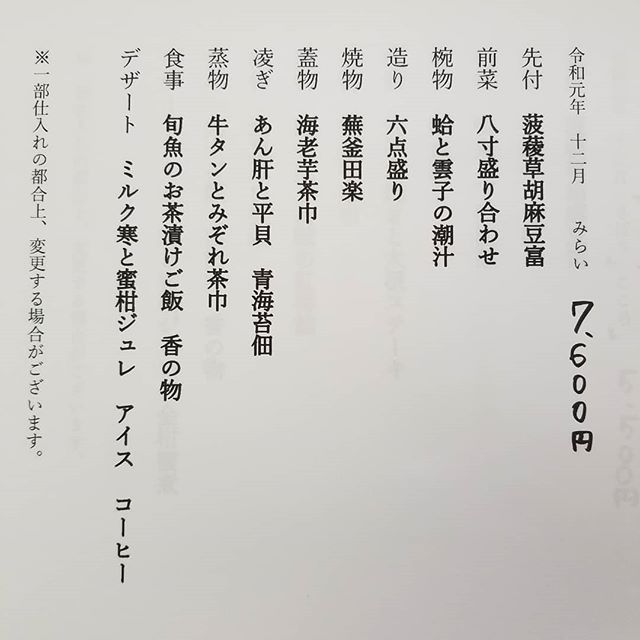 令和元年　十二月　みらい　7,600円
先付　菠薐草胡麻豆富
前菜　八寸盛り合わせ
椀物　蛤と雲子の潮汁
造り　六点盛り
焼物　蕪釜田楽
蓋物　海老芋茶巾
凌ぎ　あん肝と平貝　青海苔佃
蒸物　牛タンとみぞれ茶巾
食事　旬魚のお茶漬けご飯　香の物
デザート　ミルク寒と蜜柑ジュレ　アイス　コーヒー
※一部仕入れの都合上、変更する場合がございます。